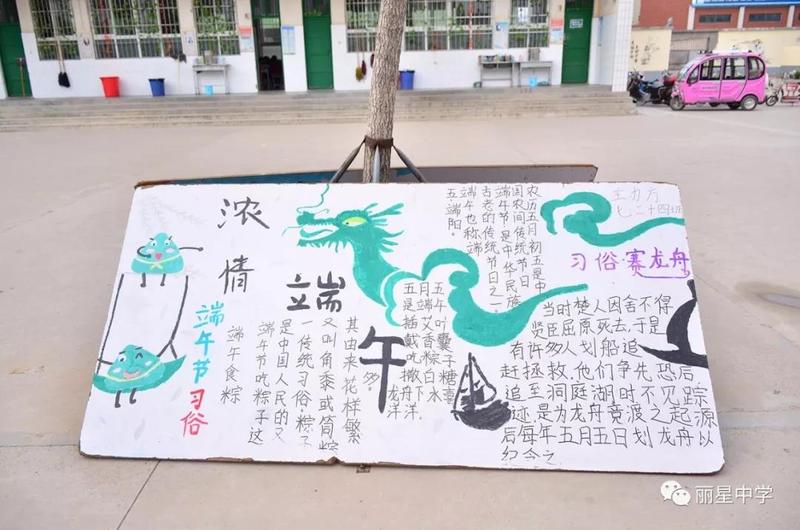 浓情端午
端午节习俗
端午食粽
端午节吃粽子这
是中国人民的又
一传统习俗.粽子
又叫角黍或筒粽
其由来花样繁
多
五月五
是端午
戴香
吃粽子
撒白糖
农历五月初五是中
国农间传统节日
端午节是中华民族
古老的传统节日之一
端午也称端
五端阳.
七二十四班
习俗:赛龙舟
当时楚人因舍不得
贤臣屈原死去,于是
有许多人划船追
赶拯救.他们争先恐后,
追至洞庭湖时不见踪
迹是为龙舟竞渡之起源
后每年五月五日划龙舟以
纪念之
丽星中学